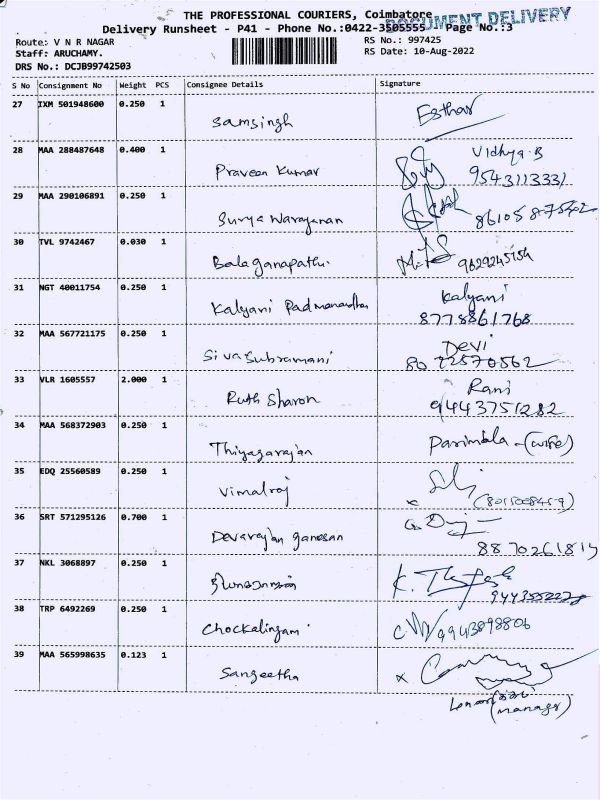 THE PROFESSIONAL COURIERS, Coimbatore
DOCUMENT DELIVERY
Delivery Runsheet - P41 - Phone No.:0422-3505555 Page No.:3
Route: V N R NAGAR
RS No.: 997425
Staff: ARUCHAMY.
RS Date: 10-Aug-2022
DRS No.: DCJB99742503
S No Consignment No Weight PCS Consignee Details Signature
27 IXM 501948600 0.250 1
Samsingh Esthar
28 MAA 288487648 0.400 1 Vidhya.B
Praveen Kumar 9543113331
29 MAA 290106891 0.250 1
Surya Narayanan 8610587542
30 TVL 9742467 0.030 1
Balaganapathi. 9629245154
31 NGT 40011754 0.250 1 Kalyani
Kalyani Padmanandhan 8778861768
32 MAA 567721175 0.250 1 Devi
Sivasubramani 8072570562
33 VLR 1605557 2.000 1 Rani
Ruth Sharon 9443751282
34 MAA 568372903 0.250 1
Thiyagarajan Parimala - (wife)
35 EDQ 25560589 0.250 1
Vimalraj x (8015008459)
36 SRT 571295126 0.700 1
Devarajan Ganesan 8870261814
37 NKL 3068897 0.250 1
38 TRP 6492269 0.250 1
Chockalingam 9943898806
39 MAA 565998635 0.123 1
Sangeetha x
(manager)